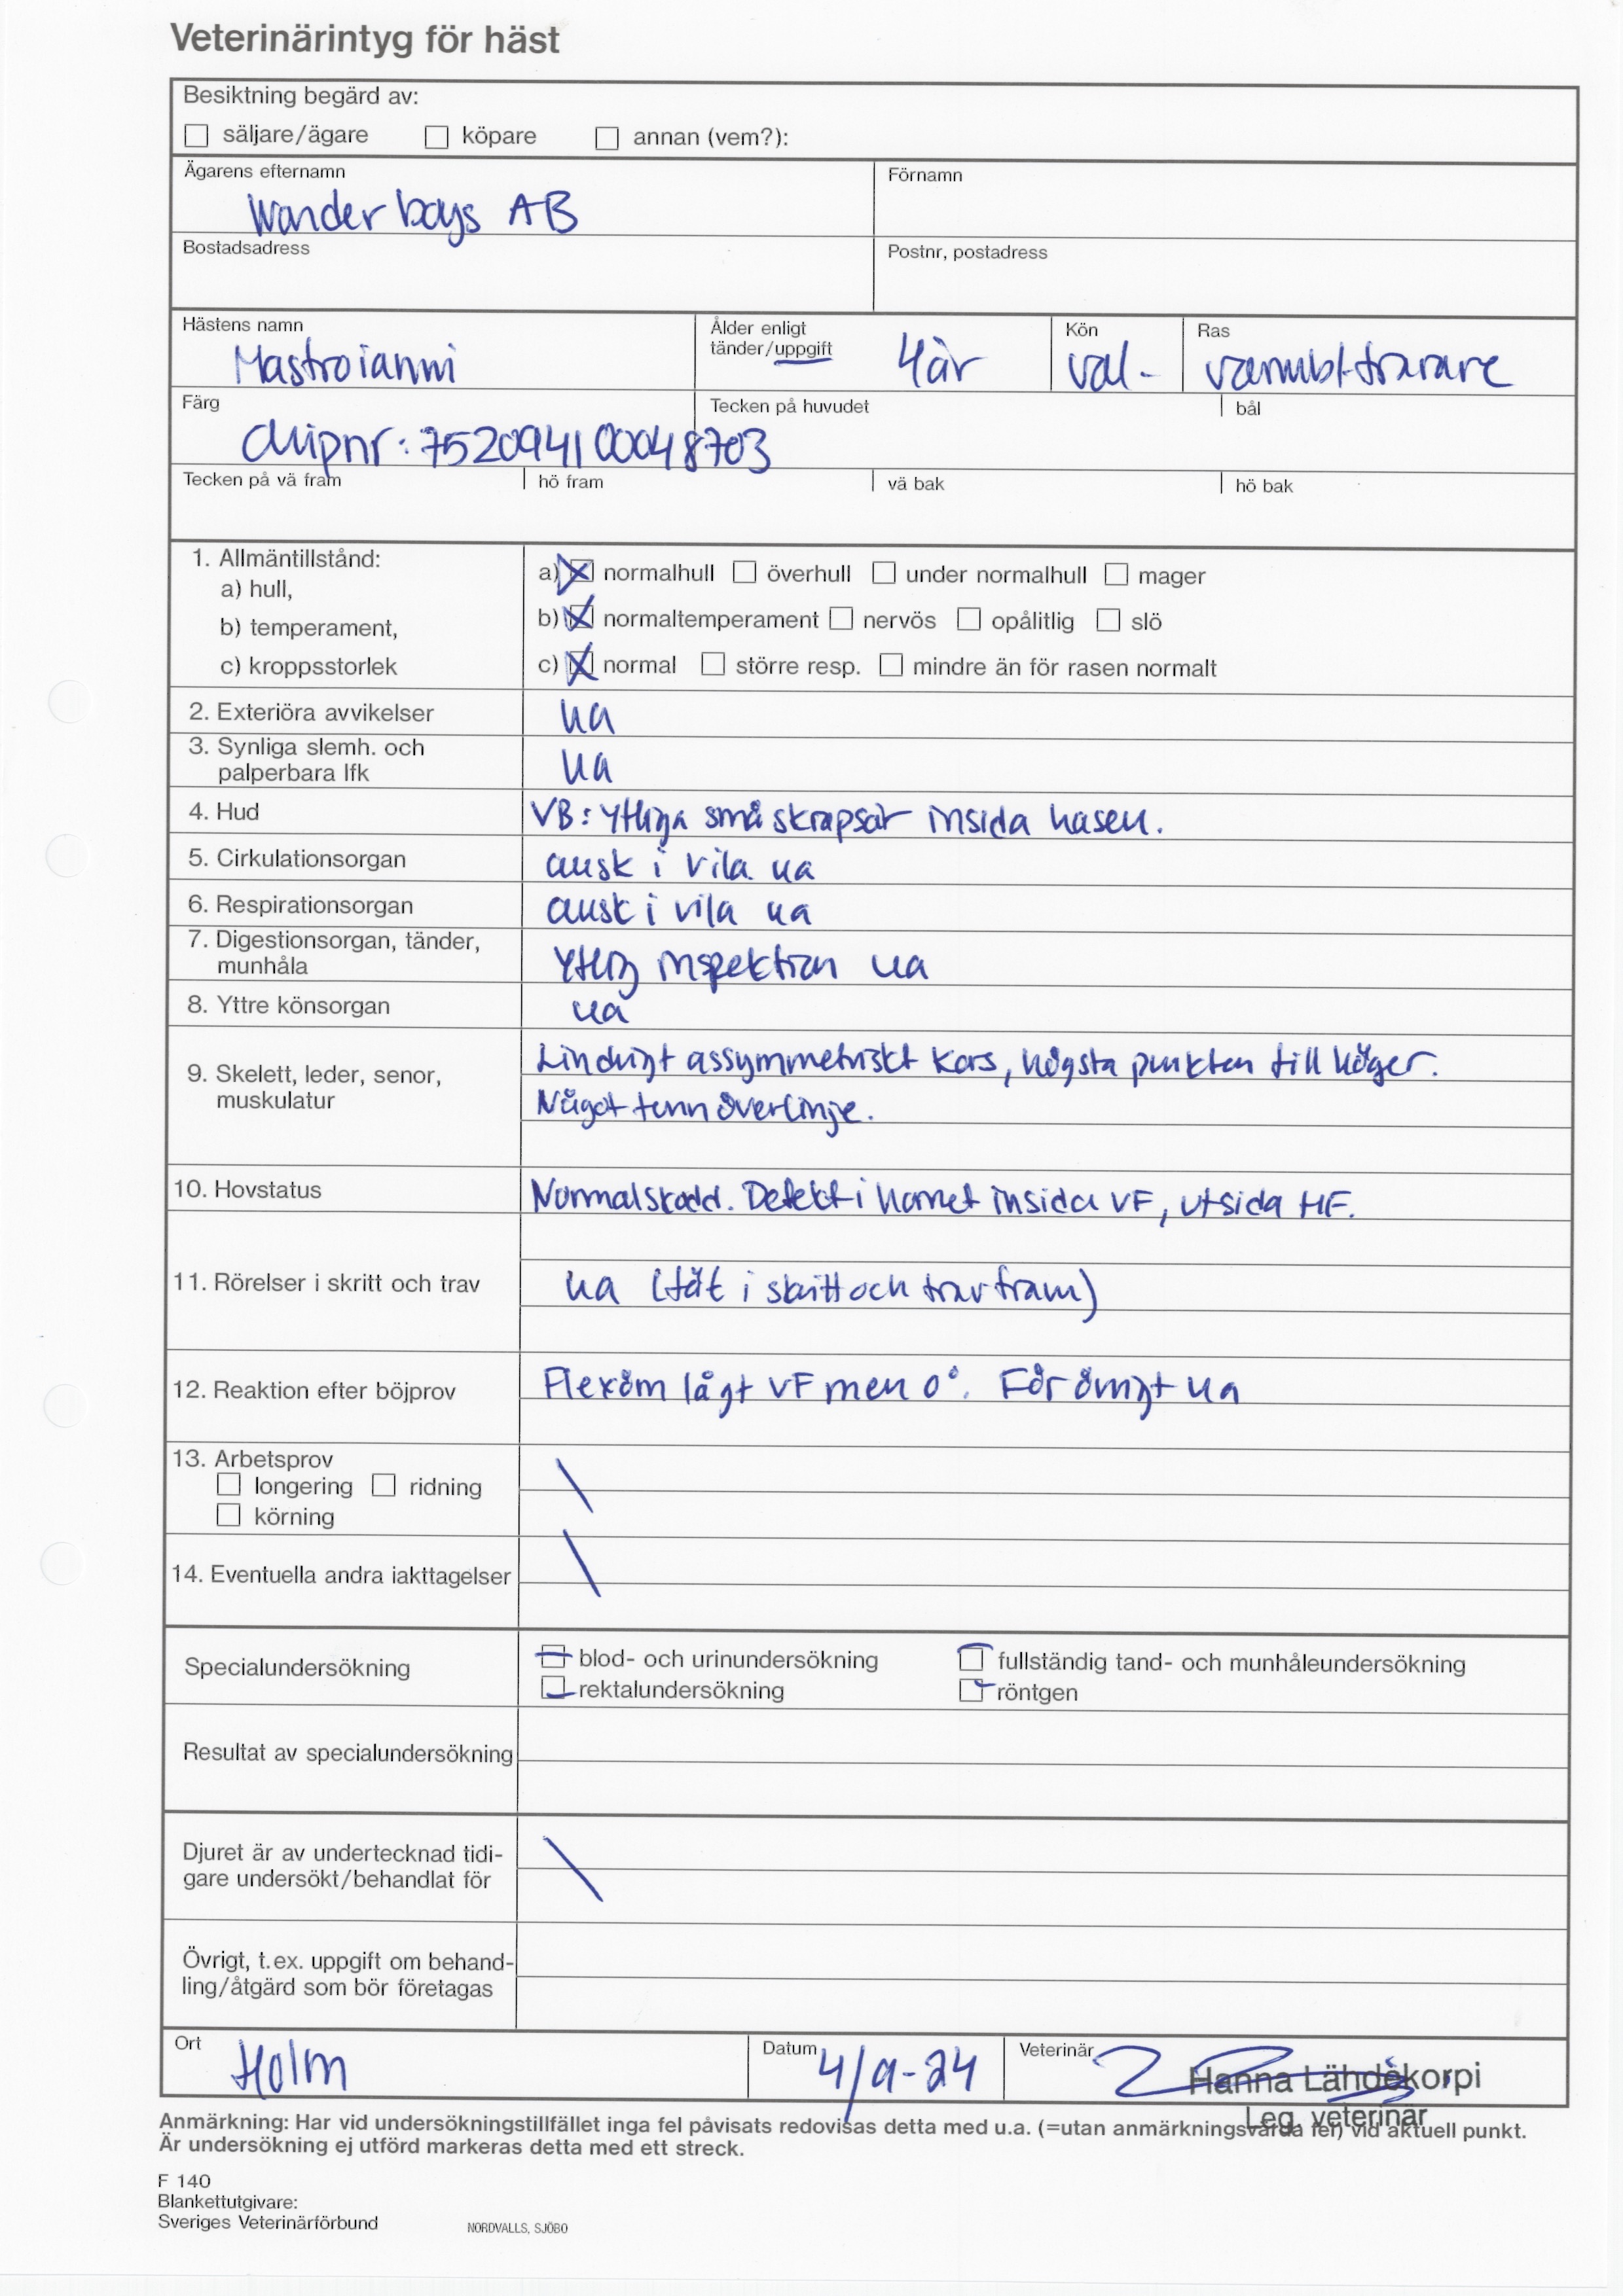 Veterinärintyg för häst
Besiktning begärd av:
säljare/ägare köpare annan (vem?):
Ägarens efternamn Förnamn
Wonder boys AB
Bostadsadress Postnr, postadress
Hästens namn Ålder enligt tänder/uppgift Kön Ras
Mastroianni 4 år val- varmbl travare
Färg Tecken på huvudet bål
Chipnr: 752094100048703
Tecken på vä fram hö fram vä bak hö bak
1. Allmäntillstånd:
a) hull, a) normalhull överhull under normalhull mager
b) temperament, b) normaltemperament nervös opålitlig slö
c) kroppsstorlek c) normal större resp. mindre än för rasen normalt
2. Exteriöra avvikelser ua
3. Synliga slemh. och
palperbara lfk ua
4. Hud VB: Ytliga små skrapsår insida hasen.
5. Cirkulationsorgan ausk i vila ua
6. Respirationsorgan ausk i vila ua
7. Digestionsorgan, tänder,
munhåla Ytlig inspektion ua
8. Yttre könsorgan ua
9. Skelett, leder, senor,
muskulatur
Lindrigt assymmetriskt kors, högsta punkten till höger.
Något tunn överlinje.
10. Hovstatus Normalskodd. Defekt i hornet insida VF, utsida HF.
11. Rörelser i skritt och trav ua (tät i skritt och trav fram)
12. Reaktion efter böjprov Flexöm lågt VF men 0°. För övrigt ua
13. Arbetsprov
longering ridning
körning
14. Eventuella andra iakttagelser
Specialundersökning
blod- och urinundersökning fullständig tand- och munhåleundersökning
rektalundersökning röntgen
Resultat av specialundersökning
Djuret är av undertecknad tidi-
gare undersökt/behandlat för
Övrigt, t.ex. uppgift om behand-
ling/åtgärd som bör företagas
Ort Datum Veterinär
Holm 4/9-24 Hanna Lähdekorpi
Leg. veterinär
Anmärkning: Har vid undersökningstillfället inga fel påvisats redovisas detta med u.a. (=utan anmärkningsvärda fel) vid aktuell punkt.
Är undersökning ej utförd markeras detta med ett streck.
F 140
Blankettutgivare:
Sveriges Veterinärförbund NORDVALLS, SJÖBO